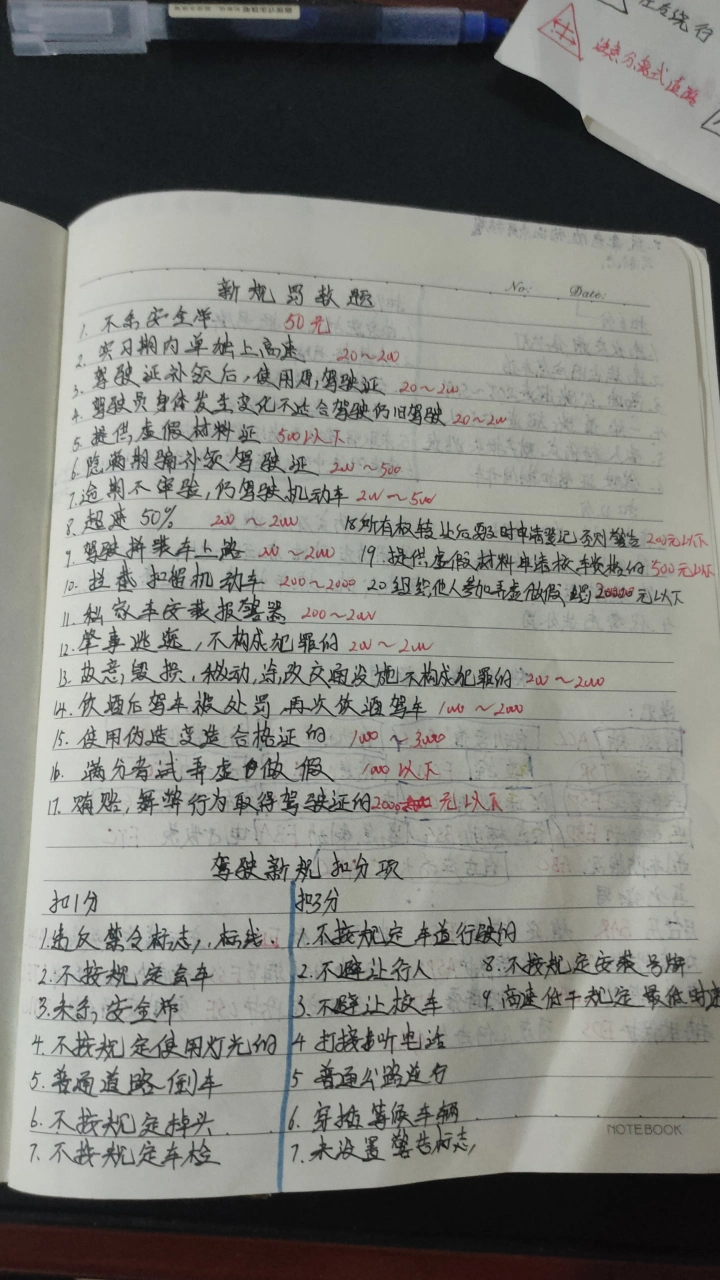 左右绕行
注意分离式道路
新规罚款题
No:
Date:
1. 不系安全带 50元
2. 实习期内单独上高速 20~200
3. 驾驶证补领后,使用原驾驶证 20~200
4. 驾驶员身体发生变化不适合驾驶仍旧驾驶 20~200
5. 提供虚假材料证 500以下
6. 隐瞒期骗补领驾驶证 200~500
7. 逾期不审验,仍驾驶机动车 200~500
8. 超速50% 200~2000
18 所有权转让后要及时申请登记 否则警告 200元以下
9. 驾驶拼装车上路 200~2000
19. 提供虚假材料申请校车资格的 500元以下
10. 拦截扣留机动车 200~2000
20 组织他人参加弄虚做假 元以下
11. 私家车安装报警器 200~2000
12. 肇事逃逸,不构成犯罪的 200~2000
13. 故意毁损,移动,涂改交通设施不构成犯罪的 200~2000
14. 饮酒后驾车被处罚,再次饮酒驾车 1000~2000
15. 使用伪造变造合格证的 1000~3000
16. 满分考试弄虚做假 1000以下
17. 贿赂,舞弊行为取得驾驶证的2000元以下
驾驶新规扣分项
扣1分
1.违反禁令标志,标线.
2.不按规定会车
3.未系安全带
4.不按规定使用灯光的
5.普通道路倒车
6.不按规定掉头
7.不按规定车检
扣3分
1.不按规定车道行驶的
2.不避让行人
3.不避让校车
4 打接听电话
5 普通公路逆行
6.穿插等候车辆
7.未设置警告标志,
8.不按规定安装号牌
9.高速低于规定最低时速
NOTEBOOK